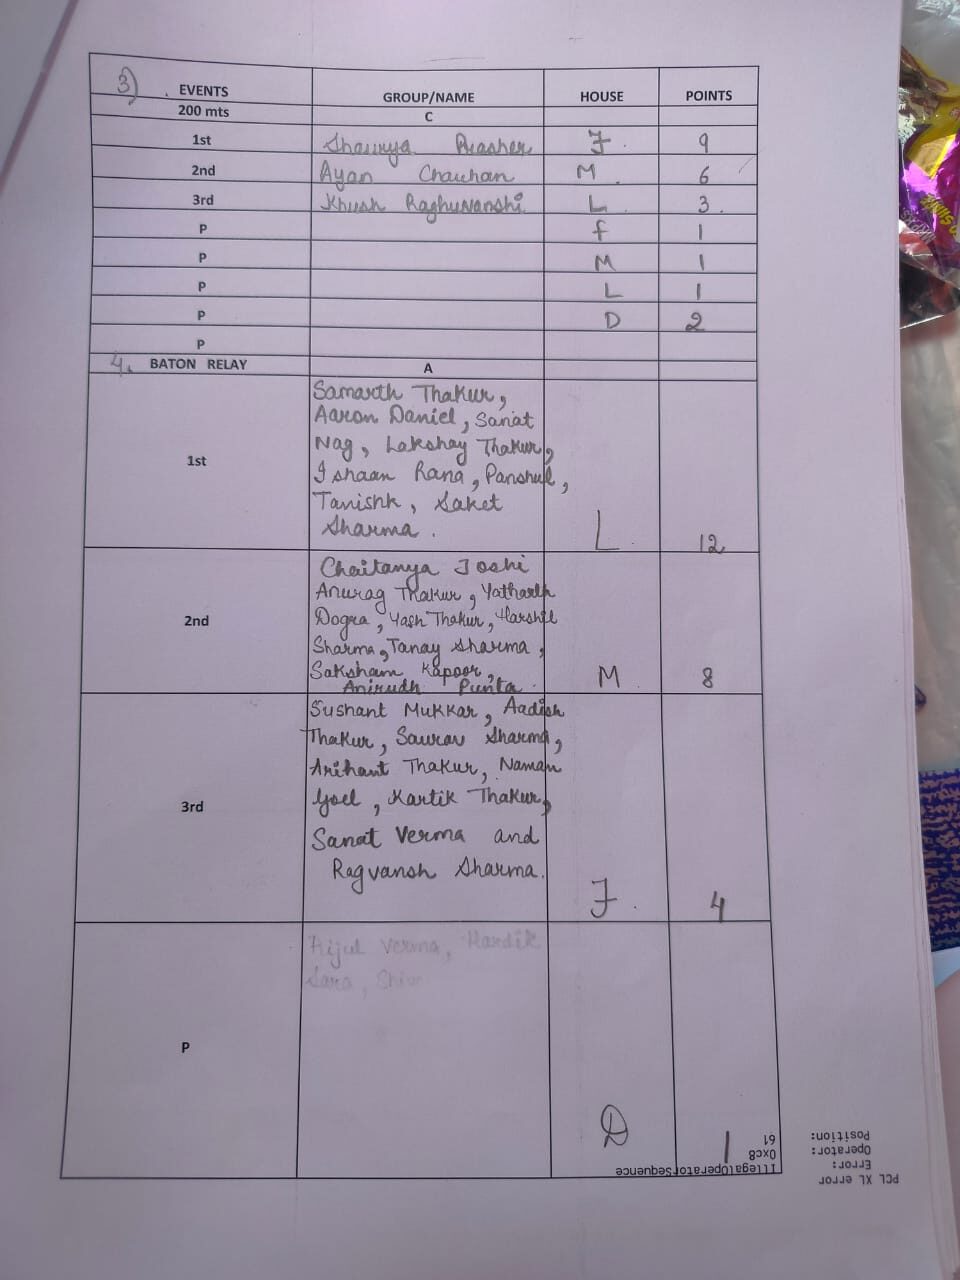 3) EVENTS GROUP/NAME HOUSE POINTS
200 mts C
1st Shaurya Prasher F. 9
2nd Ayan Chauhan M. 6
3rd Khush Raghuvanshi L. 3.
P f 1
P M 1
P L 1
P D 2
P
4. BATON RELAY A
Samarth Thakur,
Aaron Daniel, Sanat
Nag, Lakshay Thakur,
1st Ishaan Rana, Panshul,
Tanishk, Saket
Sharma. L. 12
Chaitanya Joshi
Anurag Thakur, Yatharth
2nd Dogra, Yash Thakur, Harshil
Sharma, Tanay Sharma,
Saksham Kapoor,
Anirudh Punta. M 8
Sushant Mukkar, Aadish
Thakur, Saurav Sharma,
Arihant Thakur, Naman
3rd Goel, Kartik Thakur,
Sanat Verma and
Ragvansh Sharma. F. 4
Verma, Hardik
P
D 1
PCL XL error
Error: IllegalOperatorSequence
Operator: 0xc8
Position: 61